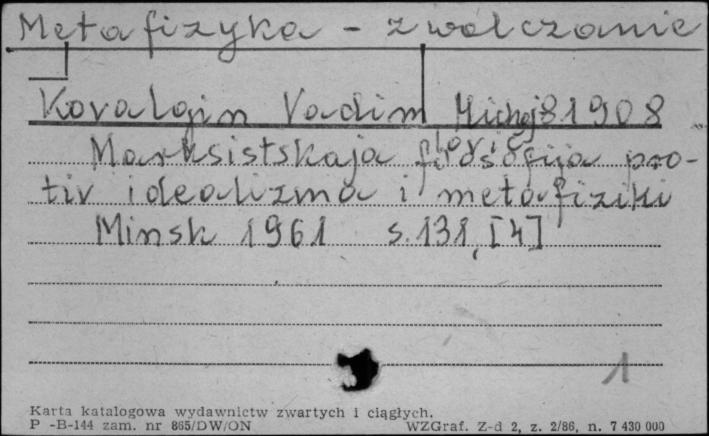 Metafizyka - zwalczanie
Kovalgin Vadim Michaj 1908
Marksistskaja filosofija pro-
tiv idealizma i metafiziki
Minsk 1961 s. 131, [4]
1
Karta katalogowa wydawnictw zwartych i ciągłych.
P -B-144 zam. nr 865/DW/ON WZGraf. Z-d 2, z. 2/86, n. 7 430 000